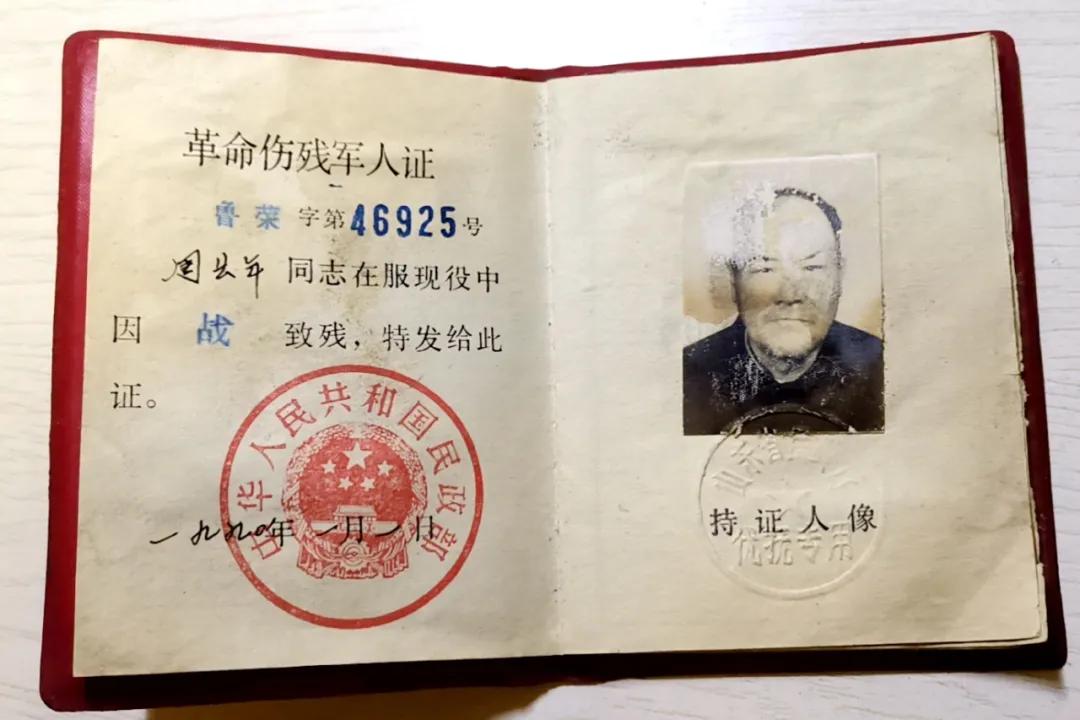 革命伤残军人证
鲁荣字第46925号
周 年 同志在服现役中
因 战 致残，特发给此
证。
中华人民共和国民政部
一九九〇年一月一日
山东省
持证人像
优抚专用